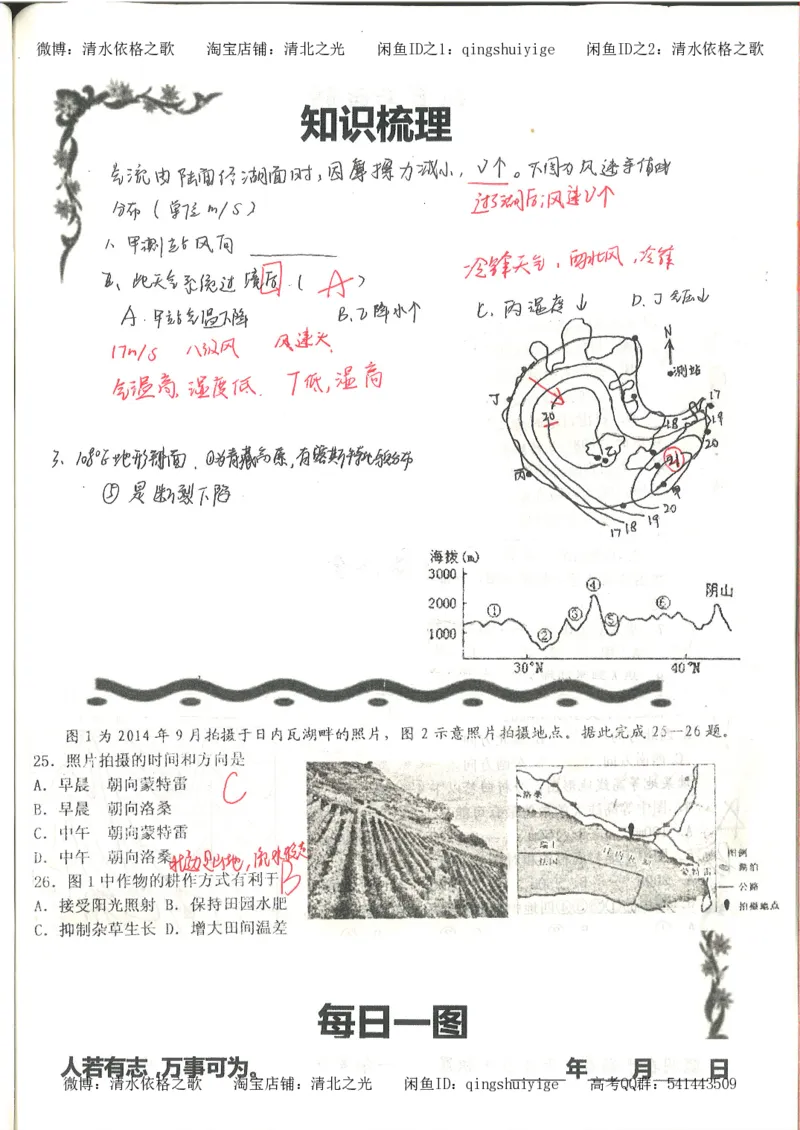 微博：清水依格之歌 淘宝店铺：清北之光 闲鱼ID之1：qingshuiyige 闲鱼ID之2：清水依格之歌
知识梳理
气流由陆面经湖面时，因摩擦力减小，V个。下图为风速等值线
分布（单位 m/s）
过了湖后，风速V个
1、甲测站风向
冷锋天气，西北风，冷锋
2、此天气系统过境后（ A ）
A. 甲站气温下降 B. 乙降水个 C. 丙湿度↓ D. 丁气压↓
17m/s 八级风 风速大
气温高，湿度低. 丁低，湿高
N
测站
丁
30
乙
丙
甲
17
18
19
20
21
20
19
18
17
3、108°E地形剖面，①为青藏高原，有喀斯特地貌分布
⑤ 是断裂下陷
海拔(m)
3000
2000
1000
① ② ③ ④ ⑤ ⑥
阴山
30°N 40°N
图1为2014年9月拍摄于日内瓦湖畔的照片，图2示意照片拍摄地点。据此完成25—26题。
25. 照片拍摄的时间和方向是
A. 早晨 朝向蒙特雷
C
B. 早晨 朝向洛桑
C. 中午 朝向蒙特雷
D. 中午 朝向洛桑
26. 图1中作物的耕作方式有利于
B
A. 接受阳光照射 B. 保持田园水肥
C. 抑制杂草生长 D. 增大田间温差
洛桑
瑞士
法国
日内瓦湖
蒙特雷
图例
湖泊
公路
拍摄地点
每日一图
人若有志，万事可为。 年 月 日
微博：清水依格之歌 淘宝店铺：清北之光 闲鱼ID：qingshuiyige 高考QQ群：541443509